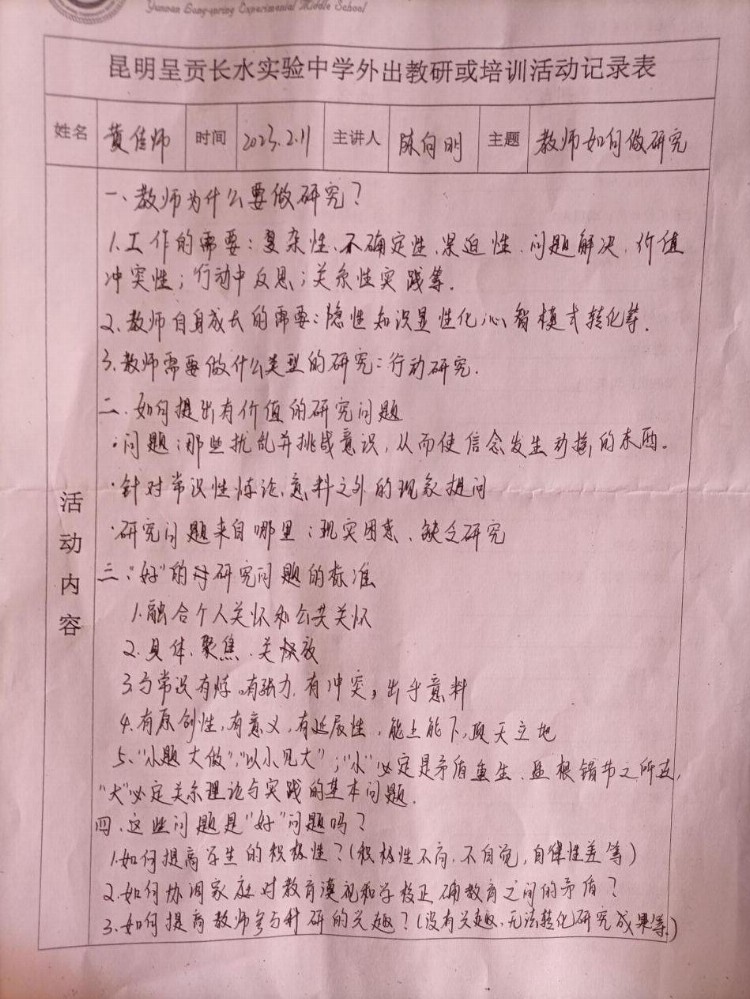 Yunnan Gong-spring Experimental Middle School
昆明呈贡长水实验中学外出教研或培训活动记录表
姓名 黄佳师 时间 2023.2.11 主讲人 陈向明 主题 教师如何做研究
活动内容
一、教师为什么要做研究?
1.工作的需要:复杂性、不确定性、紧迫性、问题解决、价值
冲突性;行动中反思;关系性实践等.
2.教师自身成长的需要:隐性知识显性化,心智模式转化等.
3.教师需要做什么类型的研究:行动研究.
二.如何提出有价值的研究问题
·问题:那些扰乱并挑战意识,从而使信念发生动摇的东西。
·针对常识性悖论、意料之外的现象提问
·研究问题来自哪里:现实困惑、缺乏研究
三."好"的研究问题的标准
1.融合个人关怀和公共关怀
2.具体、聚焦、关
3.与常识有悖。有张力,有冲突,出乎意料
4.有原创性,有意义,有延展性,能上能下,顶天立地
5."小题大做","以小见大";"小"必定是矛盾重生、盘根错节之所在,
"大"必定关乎理论与实践的基本问题.
四.这些问题是"好"问题吗?
1.如何提高学生的积极性?(积极性不高,不自觉,自律性差等)
2.如何协调家庭对教育漠视和学校正确教育之间的矛盾?
3.如何提高教师参与科研的兴趣?(没有兴趣,无法转化研究成果等.)